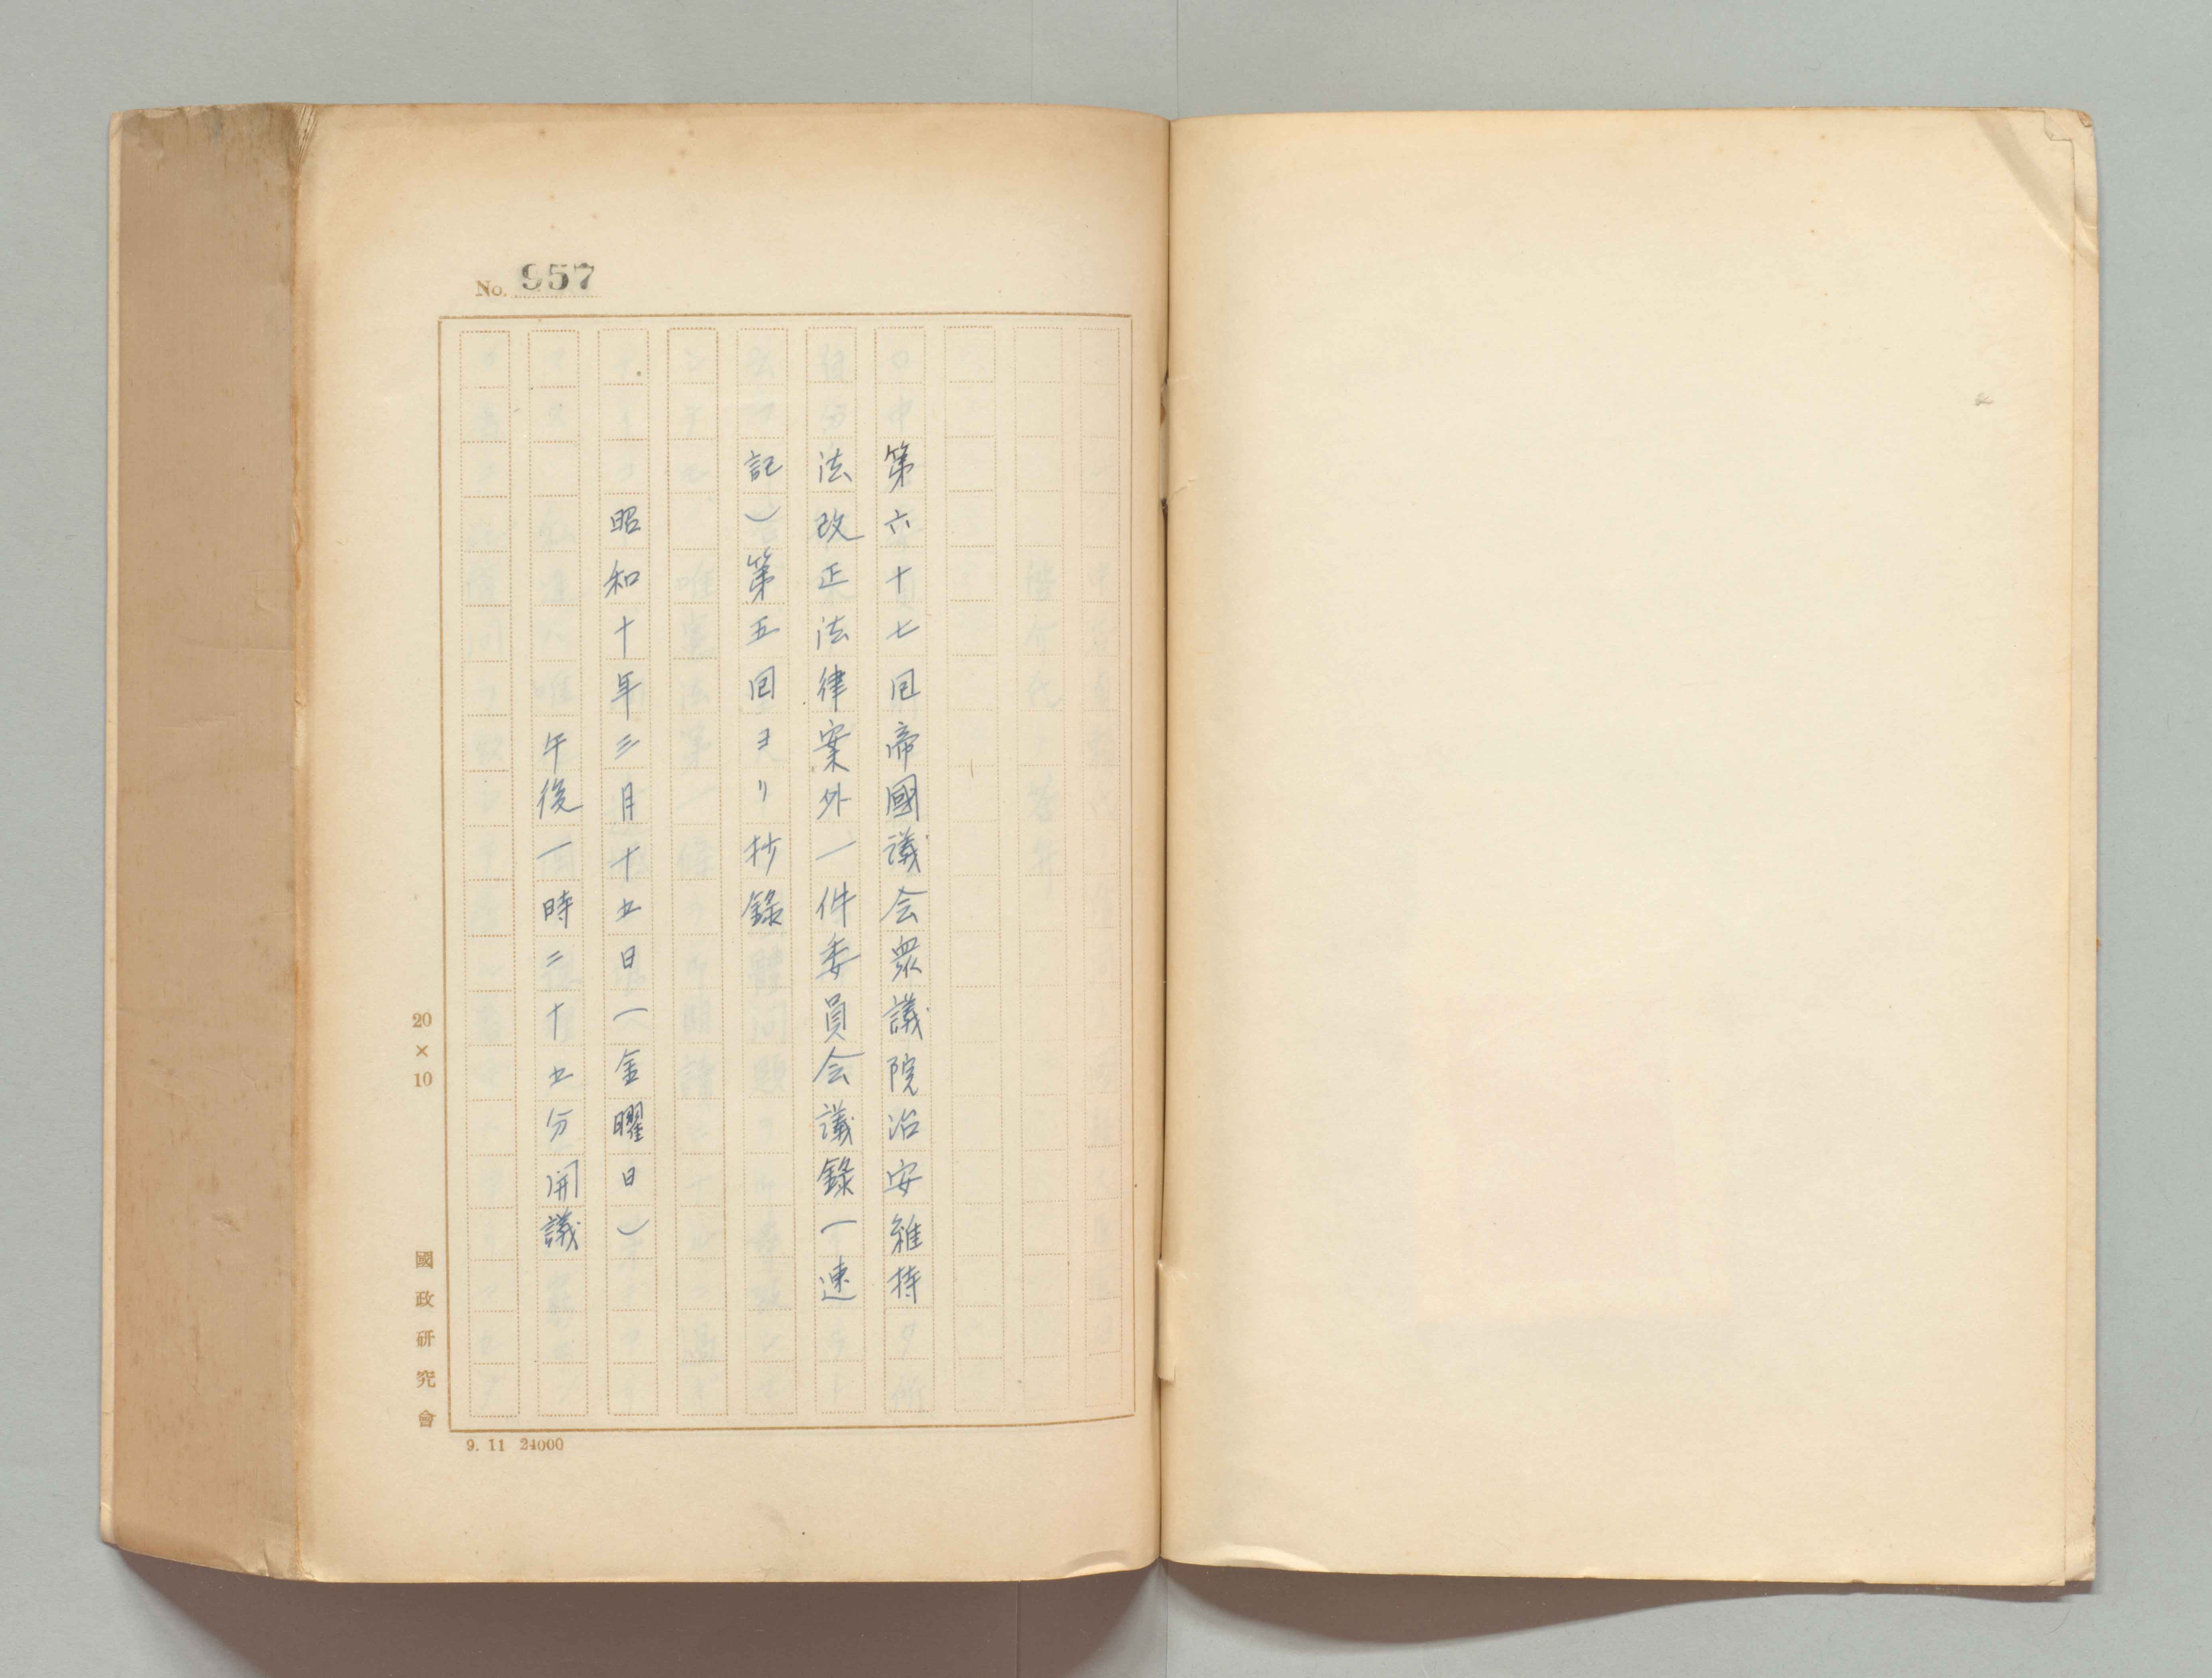 No. 957
第六十七回帝國議会衆議院治安維持
法改正法律案外一件委員会議錄（速
記）第五回ヨリ抄錄
昭和十年三月十五日（金曜日）
午後一時二十五分開議
20×10
國政研究會
9. 11 24000